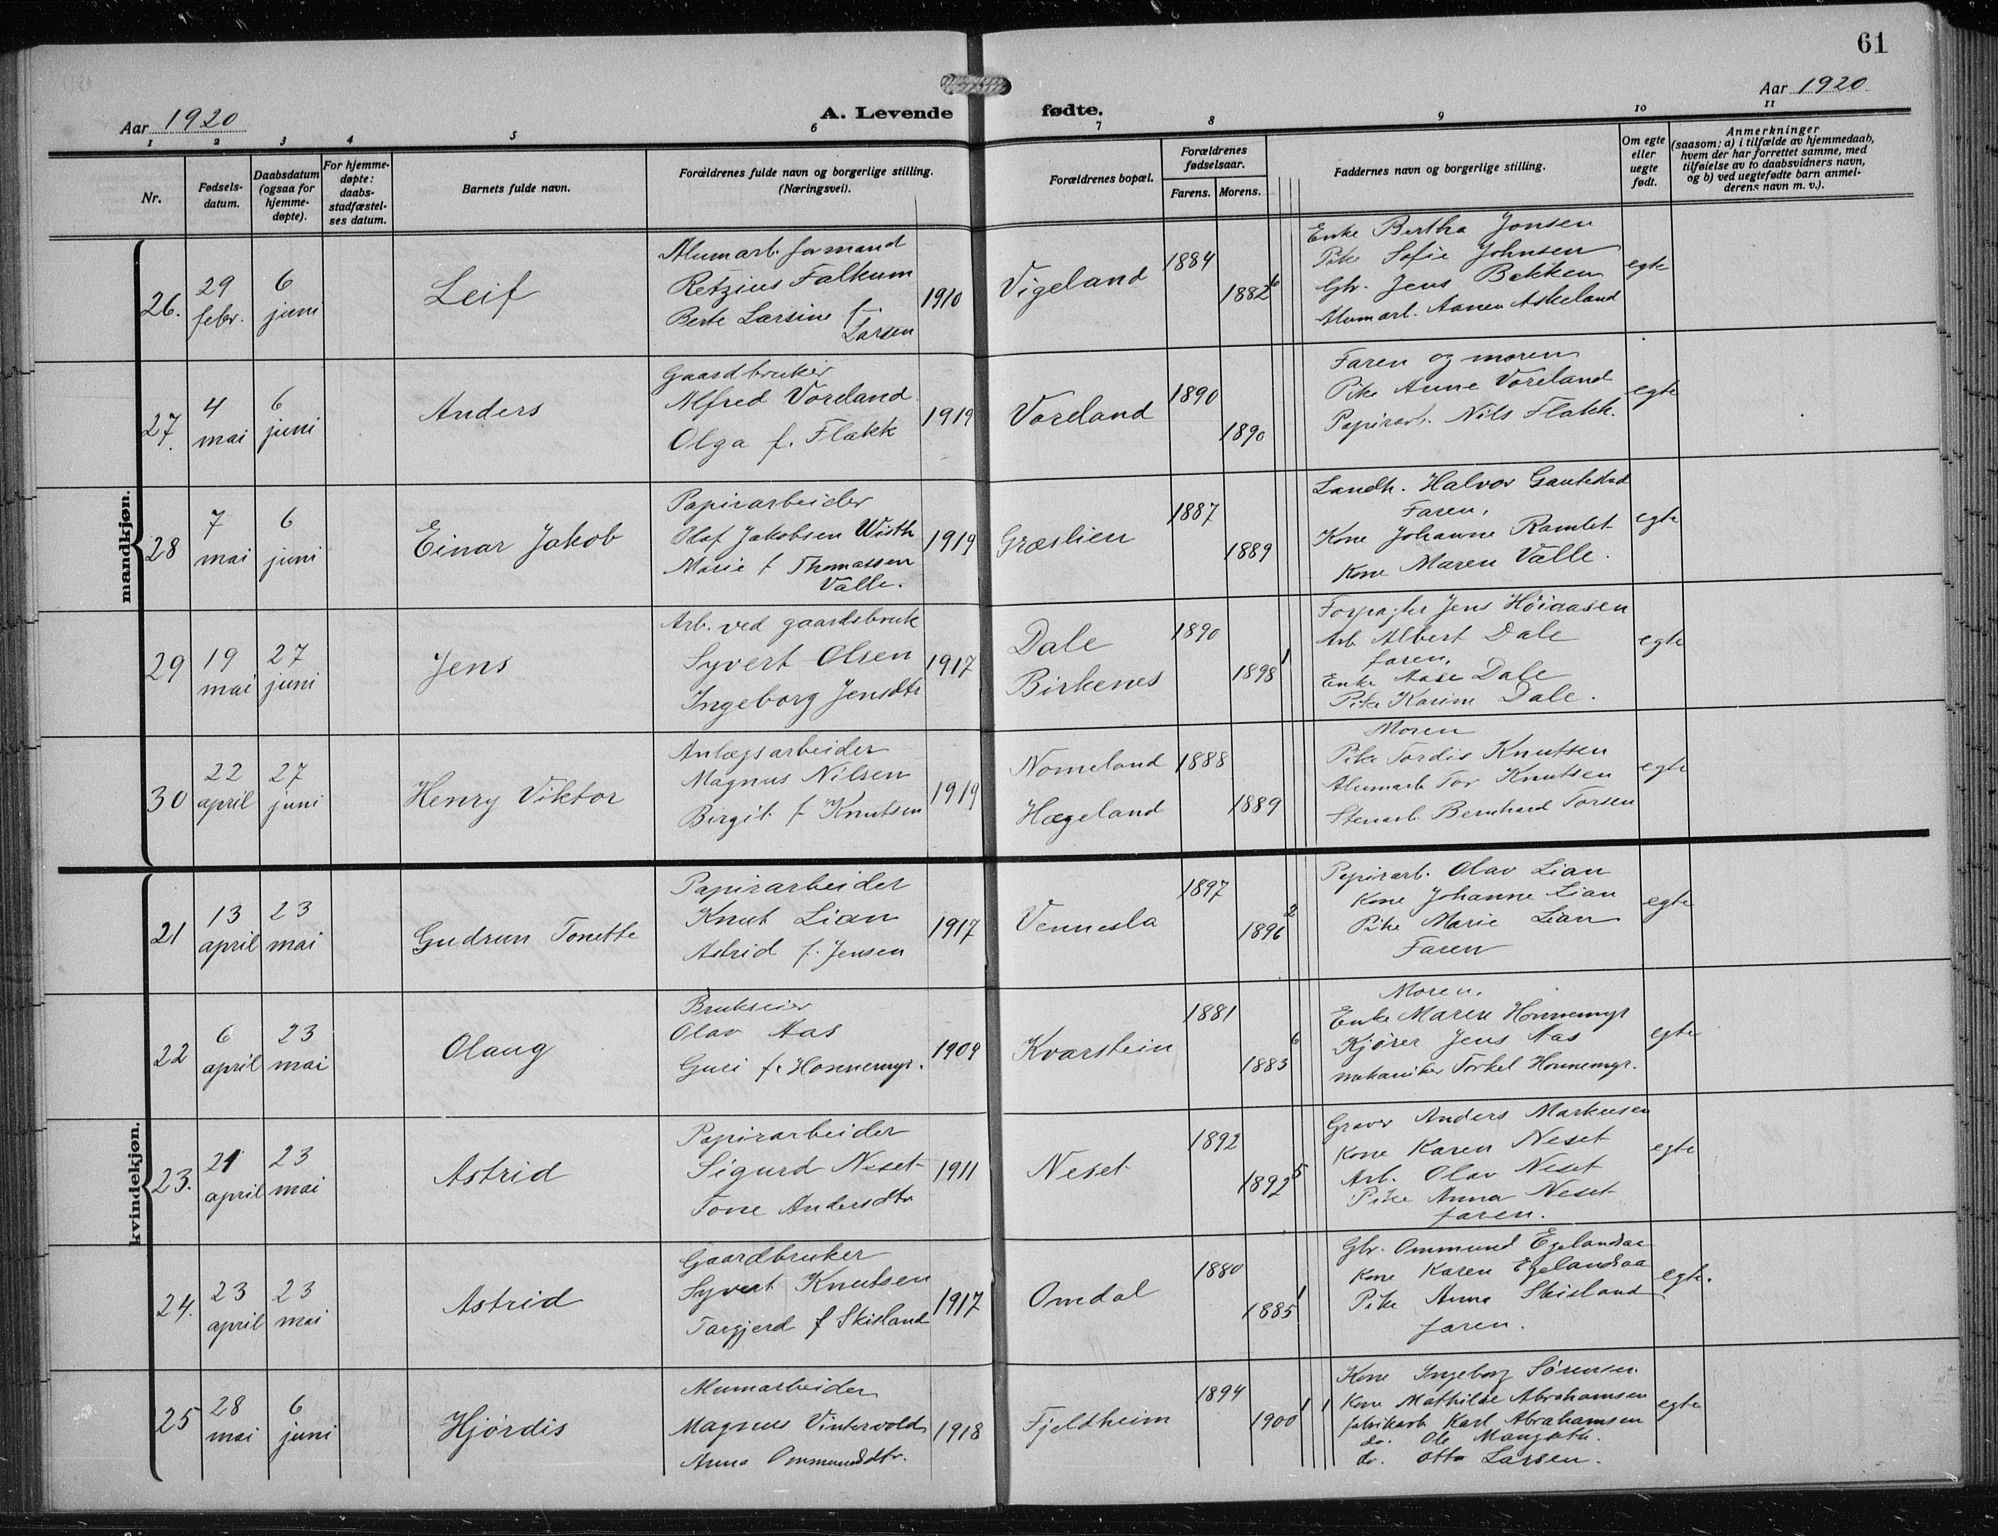 61
Aar 1920
A. Levende fødte.
Aar 1920
1 2 3 4 5 6 7 8 9 10 11
Nr.
Fødsels-
datum.
Daabsdatum
(ogsaa for
hjemme-
døpte).
For hjemme-
døpte:
daabs-
stadfæstel-
ses datum.
Barnets fulde navn.
Forældrenes fulde navn og borgerlige stilling.
(Næringsvei).
Forældrenes bopæl.
Forældrenes
fødselsaar.
Farens. Morens.
Faddernes navn og borgerlige stilling.
Om egte
eller
uegte
født.
Anmerkninger
(saasom: a) i tilfælde av hjemmedaab,
hvem der har forrettet samme, med
tilføielse av to daabsvidners navn,
og b) ved uegtefødte barn anmel-
derens navn m. v.).
mandkjøn.
26.
29
febr.
6
juni
Leif
Alumarb. formand
Retzius Falkum
Berte Larsine f.
Larsen
1910
Vigeland
1884
1882
6
Enke Bertha Jonsen
Pike Sofie Johnsen
Gbr. Jens Bakken
Alumarb. Aanen Askeland
egte
27.
4
mai
6
juni
Anders
Gaardbruker
Alfred Voreland
Olga f. Flakk
1919
Voreland
1890
1890
Faren og moren
Pike Anne Voreland
Papirarb. Nils Flakk.
egte
28
7
mai
6
juni
Einar Jakob
Papirarbeider
Olaf Jakobsen Wisth
Marie f Thomassen
Valle.
1919
Græslien
1887
1889
Landh. Halvor Gautestad
Faren,
Kone Johanne Ramlet
Kone Maren Valle.
egte
29
19
mai
27
juni
Jens
Arb. ved gaardsbruk
Syvert Olsen
Ingeborg Jensdtr
1917
Dale
Birkenes
1890
1898
1
Forpagter Jens Høiaasen
Arb. Albert Dale
faren,
Enke Aase Dale
Pike Karine Dale.
egte
30
22
april
27
juni
Henry Viktor
Anlægsarbeider
Magnus Nilsen
Birgit f Knutsen
1919
Nomeland
Hægeland
1888
1889
Moren
Pike Tordis Knutsen
Alumarb Tor Knutsen
Stenarb. Bernhard Torsen
egte
kvindekjøn.
21
13
april
23
mai
Gudrun Tonette
Papirarbeider
Knut Lian
Astrid f. Jensen
1917
Vennesla
1897
1896
2
Papirarb. Olav Lian
Kone Johanne Lian
Pike Marie Lian
Faren
egte
22
6
april
23
mai
Olaug
Brukseier
Olav Aas
Guri f. Honnemyr.
1909
Kvarstein
1881
1883
6
Moren.
Enke Maren Honnemyr
Kjører Jens Aas
mekaniker Torkel Honnemyr.
egte
23.
21
april
23
mai
Astrid
Papirarbeider
Sigurd Neset
Tone Andersdtr
1911
Neset
1892
1892
5
Graver Anders Markusen
Kone Karen Neset
Arb. Olav Neset
Pike Anna Neset
faren.
egte
24.
23
april
23
mai
Astrid
Gaardbruker
Syvert Knutsen
Targjerd f Skisland
1917
Omdal
1880
1885
1
Gbr. Ommund Egelandsaa
Kone Karen Egelandsaa
Pike Anna Skisland
faren.
egte.
25
28
mai
6
juni
Hjørdis
Alumarbeider
Magnus Vintervold
Anna Ommundsdtr.
1918
Fjeldheim
1894
1900
1 1
Kone Ingeborg Sørensen
Kone Mathilde Abrahamsen
fabrikarb Karl Abrahamsen
do. Ole
do. Otto Larsen.
egte